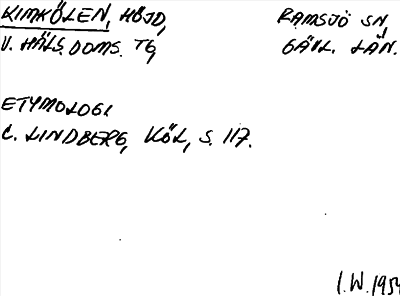 KIMKÖLEN, HÖJD, RAMSJÖ SN,
V. HÄLS. DOMS. TG, GÄVL. LÄN.
ETYMOLOGI
C. LINDBERG, KÖL, S. 117.
I.W. 1954